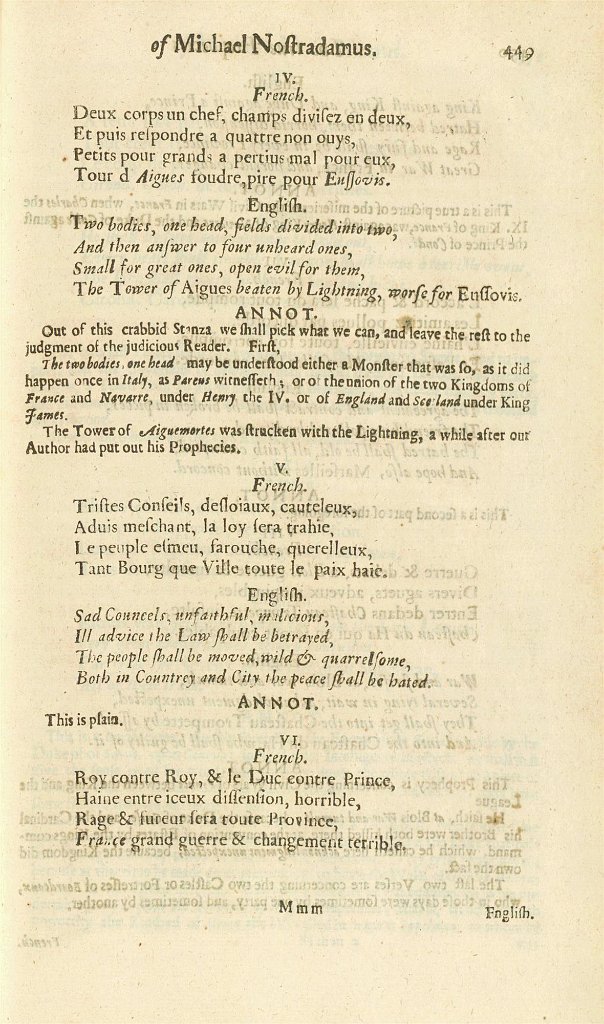 of Michael Noſtradamus. 449
IV.
French.
Deux corps un chef, champs diviſez en deux,
Et puis reſpondre a quattre non ouys,
Petits pour grands a pertius mal pour eux,
Tour d Aigues foudre, pire pour Euſſovis.
Engliſh.
Two bodies, one head, fields divided into two,
And then anſwer to four unheard ones,
Small for great ones, open evil for them,
The Tower of Aigues beaten by Lightning, worſe for Euſſovis.
ANNOT.
Out of this crabbid Stanza we ſhall pick what we can, and leave the reſt to the
judgment of the judicious Reader. Firſt,
The two bodies, one head may be underſtood either a Monſter that was ſo, as it did
happen once in Italy, as Pareus witneſſeth; or of the union of the two Kingdoms of
France and Navarre, under Henry the IV. or of England and Scotland under King
James.
The Tower of Aiguemortes was ſtrucken with the Lightning, a while after our
Author had put out his Prophecies.
V.
French.
Triſtes Conſeils, deſloiaux, cauteleux,
Aduis meſchant, la loy ſera trahie,
Le peuple eſmeu, farouche, querelleux,
Tant Bourg que Ville toute le paix haie.
Engliſh.
Sad Councels, unfaithful, malicious,
Ill advice the Law ſhall be betrayed,
The people ſhall be moved, wild & quarrelſome,
Both in Countrey and City the peace ſhall be hated.
ANNOT.
This is plain.
VI.
French.
Roy contre Roy, & le Duc contre Prince,
Haine entre iceux diſſenſion, horrible,
Rage & fureur ſera toute Province,
France grand guerre & changement terrible.
Mmm
Engliſh.